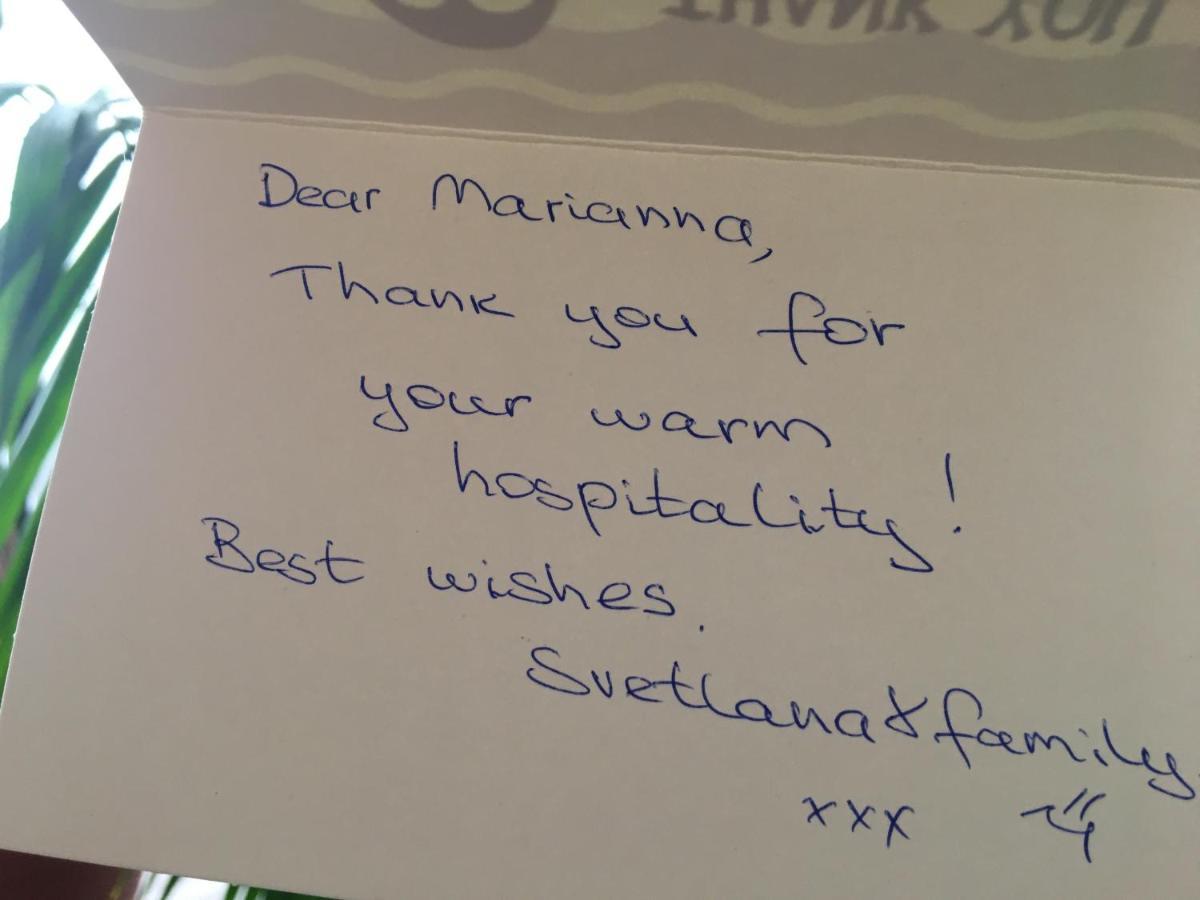 THANK YOU
Dear Marianna,
Thank you for
your warm
hospitality!
Best wishes.
Svetlana & family
xxx